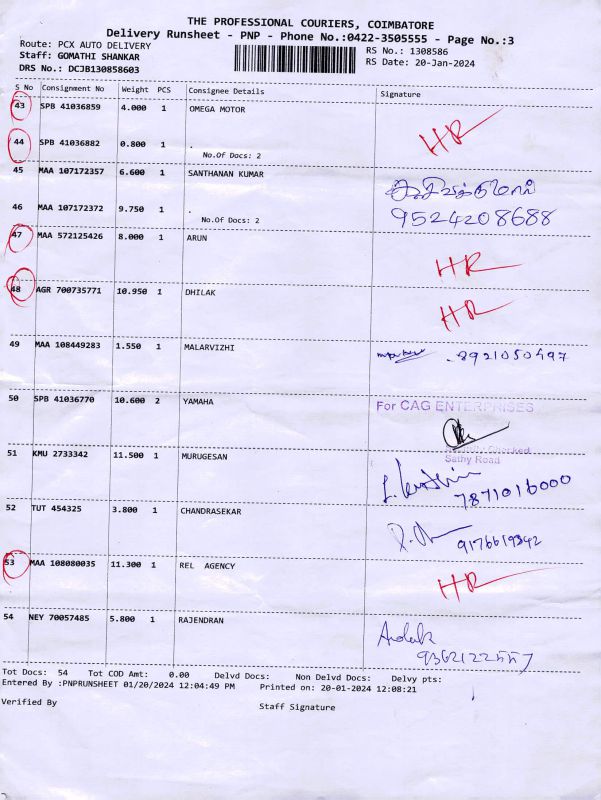 THE PROFESSIONAL COURIERS, COIMBATORE
Delivery Runsheet - PNP - Phone No.:0422-3505555 - Page No.:3
Route: PCX AUTO DELIVERY
RS No.: 1308586
Staff: GOMATHI SHANKAR
RS Date: 20-Jan-2024
DRS No.: DCJB130858603
S No Consignment No Weight PCS Consignee Details Signature
43 SPB 41036859 4.000 1 OMEGA MOTOR
HR
44 SPB 41036882 0.800 1 .
No.Of Docs: 2
45 MAA 107172357 6.600 1 SANTHANAN KUMAR
46 MAA 107172372 9.750 1 .
9524208688
No.Of Docs: 2
47 MAA 572125426 8.000 1 ARUN
HR
48 AGR 700735771 10.950 1 DHILAK
HR
49 MAA 108449283 1.550 1 MALARVIZHI
8921050497
50 SPB 41036770 10.600 2 YAMAHA
For CAG ENTERPRISES
Sathy Road
51 KMU 2733342 11.500 1 MURUGESAN
7871016000
52 TUT 454325 3.800 1 CHANDRASEKAR
9176619342
53 MAA 108080035 11.300 1 REL AGENCY
HR
54 NEY 70057485 5.800 1 RAJENDRAN
9362122557
Tot Docs: 54 Tot COD Amt: 0.00 Delvd Docs: Non Delvd Docs: Delvy pts:
Entered By :PNPRUNSHEET 01/20/2024 12:04:49 PM Printed on: 20-01-2024 12:08:21
Verified By Staff Signature